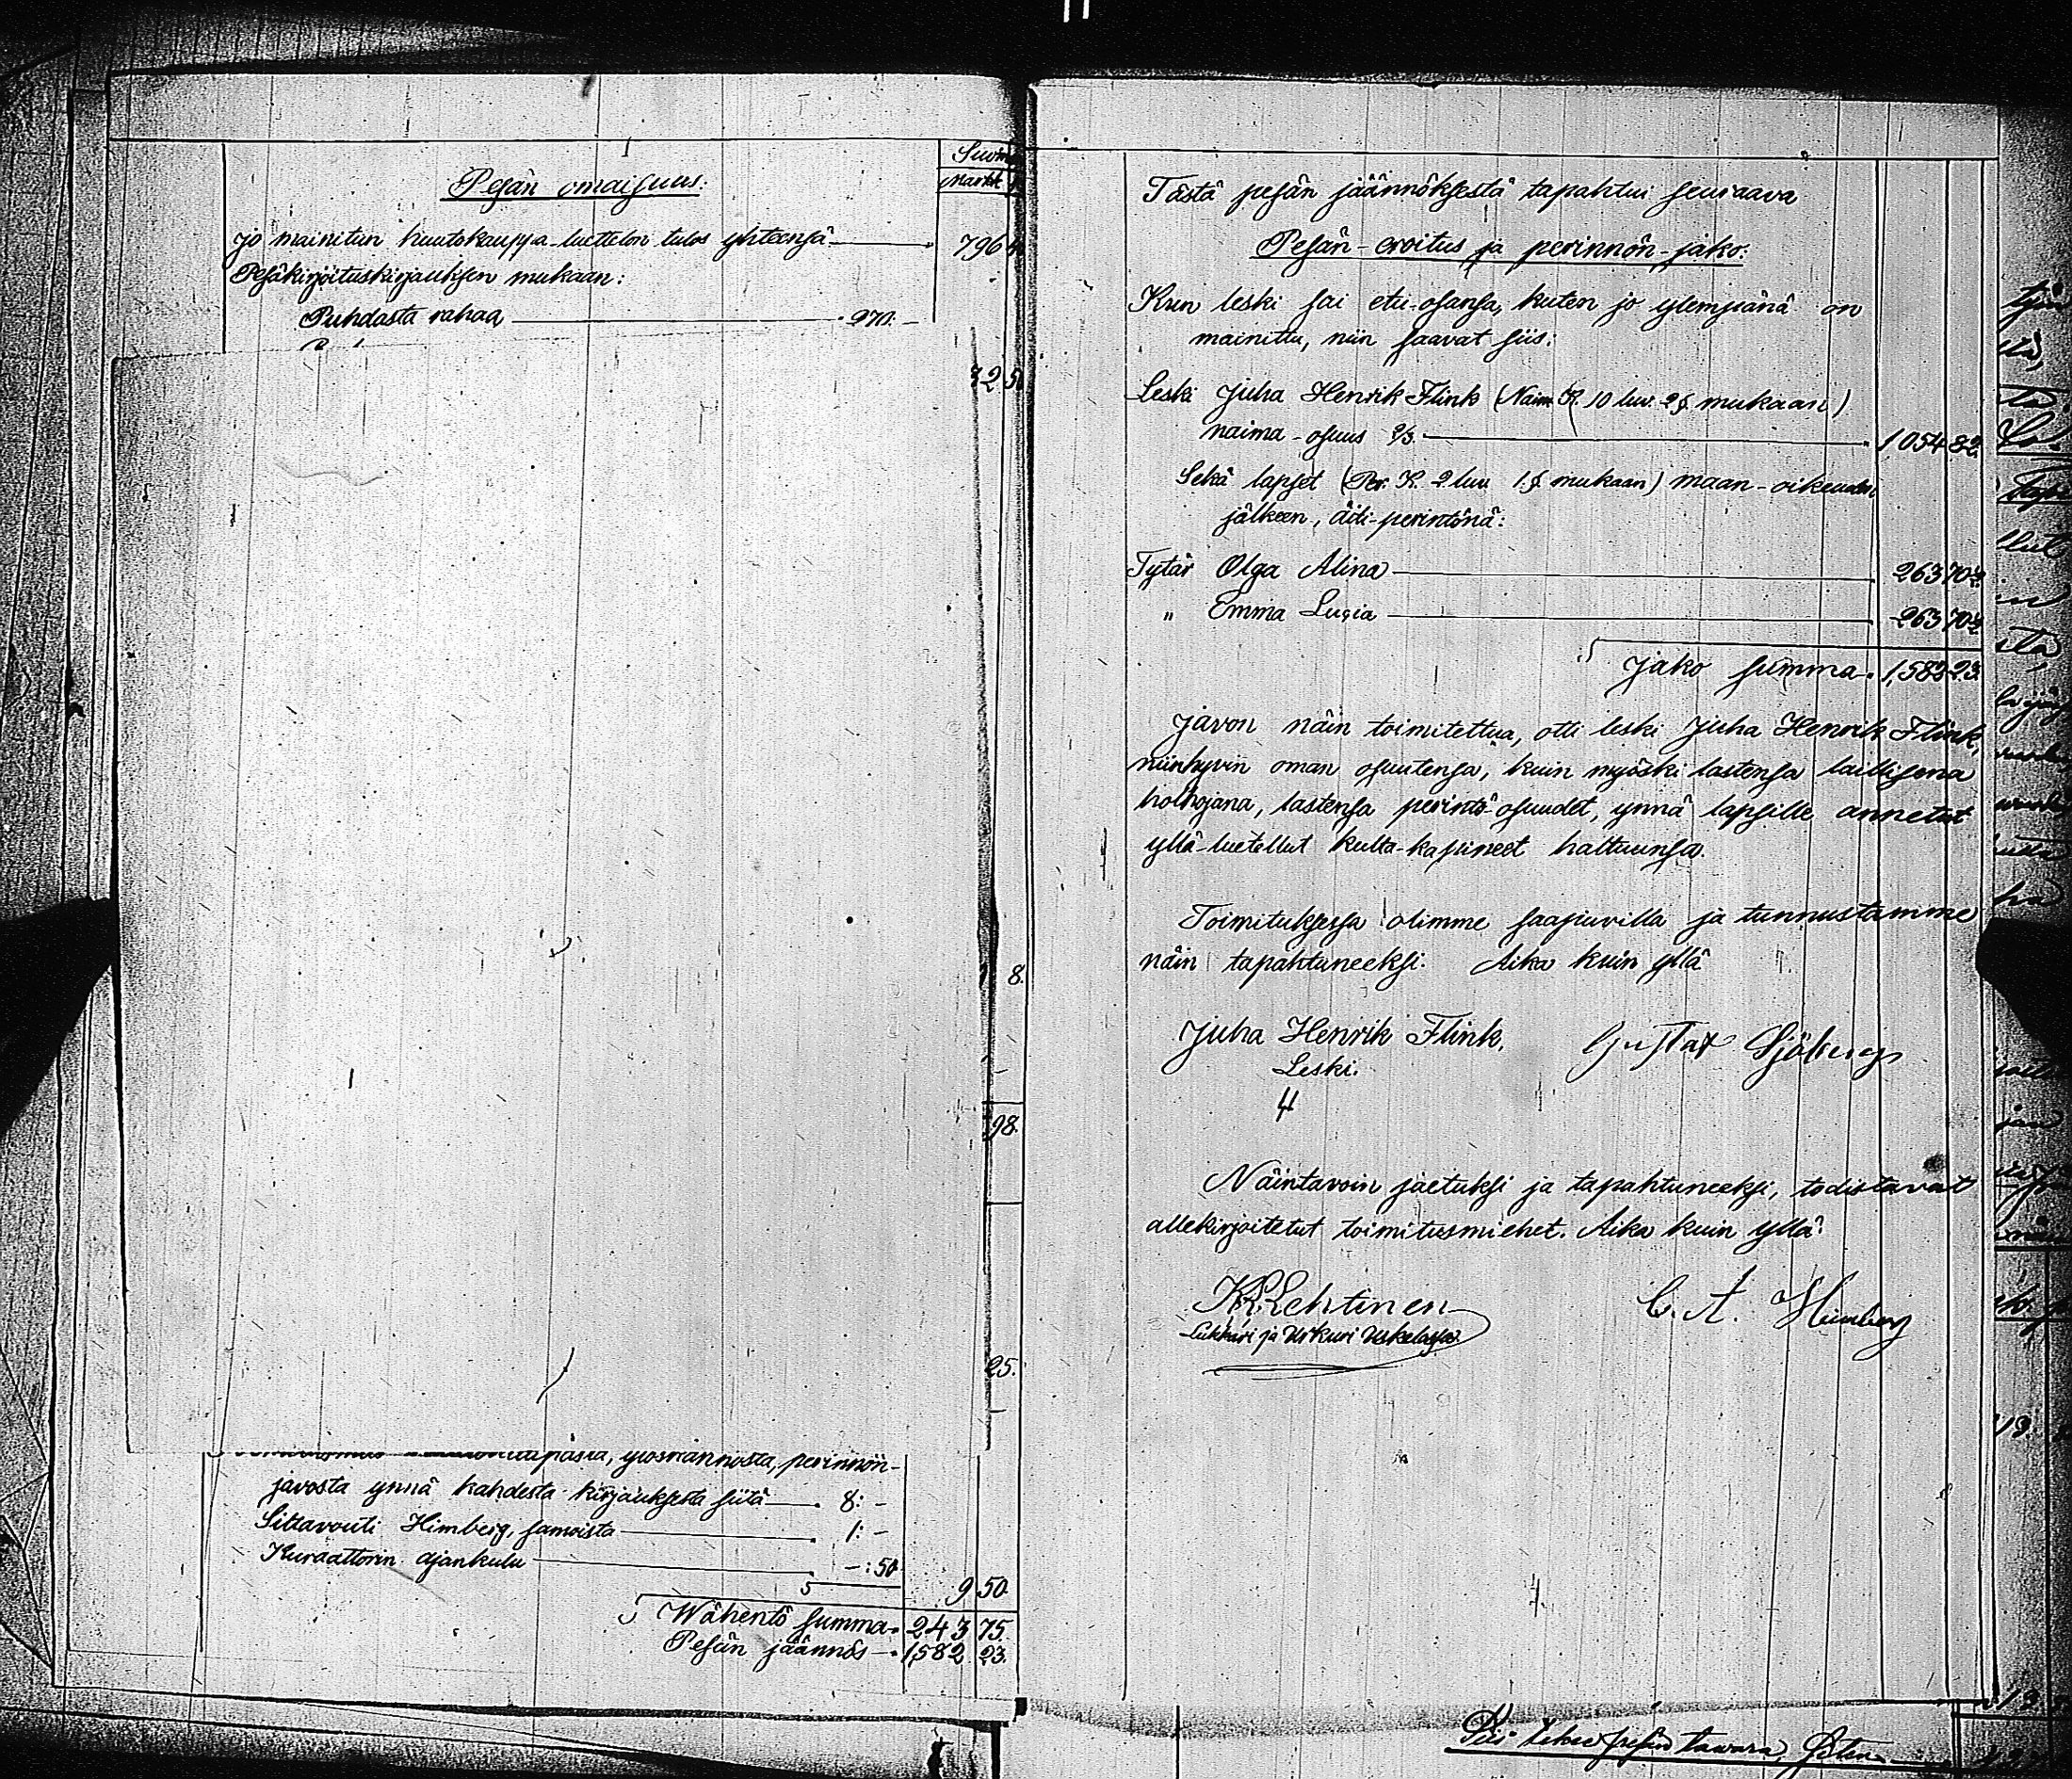 Suom
Markk
Pesän omaisuus:
Jo mainitun huutokauppa-luettelon tulos yhteensä 796
Pesäkirjoituskirjauksen mukaan:
Puhdasta rahaa 270. –
72 5
8.
98.
25.
perinnön-
javosta ynnä kahdesta kirjauksesta siitä 8: –
Siltavouti Himberg, samoista 1: –
Kuraattorin ajankulu – : 50
9 50
Wähentö summa 243 75.
Pesän jäännös 1,582 23.
Tästä pesän jäännöksestä tapahtui seuraava
Pesän-eroitus ja perinnön-jako:
Kun leski sai etu-osansa, kuten jo ylempänä on
mainittu, niin saavat siis:
Leski Juha Henrik Flink (Naim. K. 10 luv. 2 § mukaan)
naima-osuus 2/3. 1,054 82.
Sekä lapset (Per. K. 2 luv. 1 § mukaan) maan-oikeuden
jälkeen, äiti-perintönä:
Tytär Olga Alina 263 70½
" Emma Lusia 263 70½
Jako summa 1,582 23.
Javon näin toimitettua, otti leski Juha Henrik Flink,
niinhyvin oman osuutensa, kuin myöski lastensa laillisena
holhojana, lastensa perintö-osuudet, ynnä lapsille annetut
yllä-luetellut kulta-kapineet haltuunsa.
Toimituksessa olimme saapuvilla ja tunnustamme
näin tapahtuneeksi. Aika kuin yllä
Juha Henrik Flink, Gustaf Sjöberg
Leski.
Näintavoin jaetuksi ja tapahtuneeksi, todistavat
allekirjoitetut toimitusmiehet. Aika kuin yllä.
K. Lehtinen C. A. Himberg
Lukkari ja Urkuri Uskelassa.